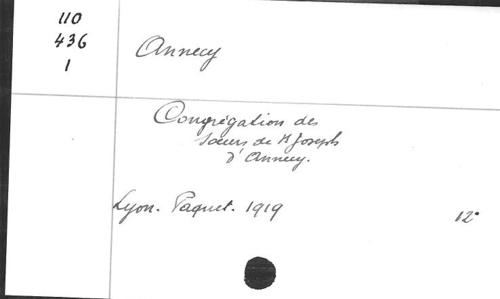 110
436
1
Annecy
Congrégation des
sœurs de St Joseph
d'Annecy.
Lyon. Paquet. 1919
12°